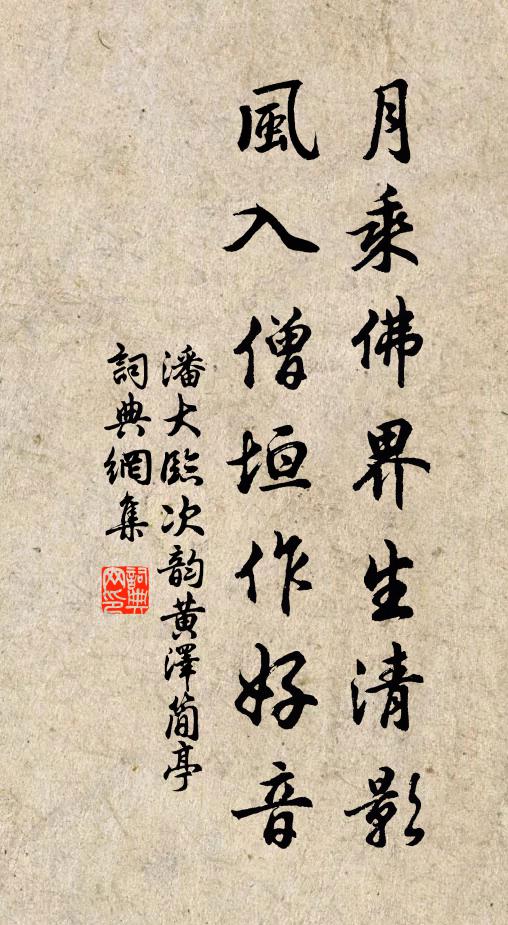 月乘佛界生清影
風入僧垣作好音
潘大臨次韵黃澤簡亭
詞典網集
詞典
网印